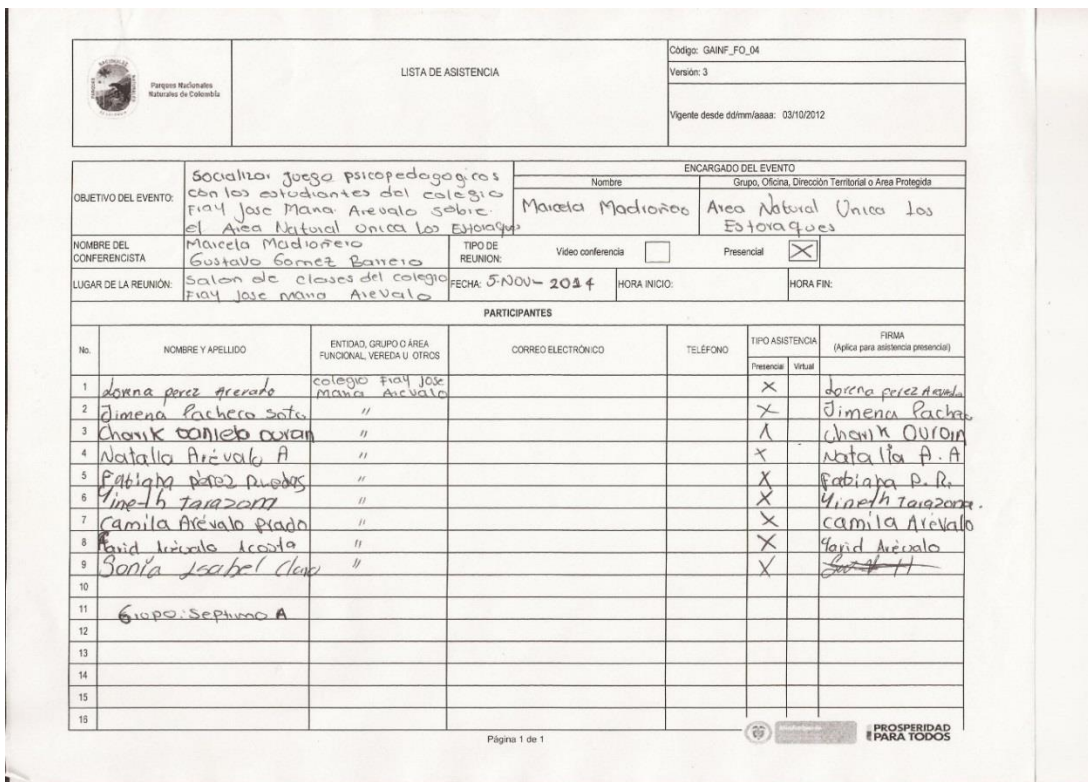 PARQUES NACIONALES NATURALES COLOMBIA
Parques Nacionales
Naturales de Colombia
LISTA DE ASISTENCIA
Código: GAINF_FO_04
Versión: 3
Vigente desde dd/mm/aaaa: 03/10/2012
OBJETIVO DEL EVENTO:
Socializar juego psicopedagogicos
con los estudiantes del colegio
Fray Jose Maria Arevalo sobre
el Area Natural Unica Los Estoraques
ENCARGADO DEL EVENTO
Nombre
Grupo, Oficina, Dirección Territorial o Area Protegida
Marcela Madroñero
Area Natural Unica Los
Estoraques
NOMBRE DEL
CONFERENCISTA
Marcela Madroñero
Gustavo Gomez Barrero
TIPO DE
REUNION:
Video conferencia
Presencial X
LUGAR DE LA REUNIÓN:
Salon de clases del colegio
Fray Jose Maria Arevalo
FECHA: 5-NOV-2014
HORA INICIO:
HORA FIN:
PARTICIPANTES
No.
NOMBRE Y APELLIDO
ENTIDAD, GRUPO O ÁREA
FUNCIONAL, VEREDA U OTROS
CORREO ELECTRÓNICO
TELÉFONO
TIPO ASISTENCIA
Presencial Virtual
FIRMA
(Aplica para asistencia presencial)
1 Lorena perez Arevalo colegio Fray Jose Maria Arevalo X Lorena perez Arevalo
2 Jimena Pacheco Soto " X Jimena Pachec
3 Charik Daniela Duran " X Charik Duran
4 Natalia Arévalo A " X Natalia A.A
5 Fabiana pérez Ruedas " X Fabiana P.R.
6 Yineth Tarazona " X Yineth Tarazona.
7 Camila Arévalo prado " X camila Arévalo
8 Yarid Arévalo Acosta " X Yarid Arévalo
9 Sonia Isabel Claro " X
10
11 Grupo: Septimo A
12
13
14
15
16
Página 1 de 1
PROSPERIDAD
PARA TODOS